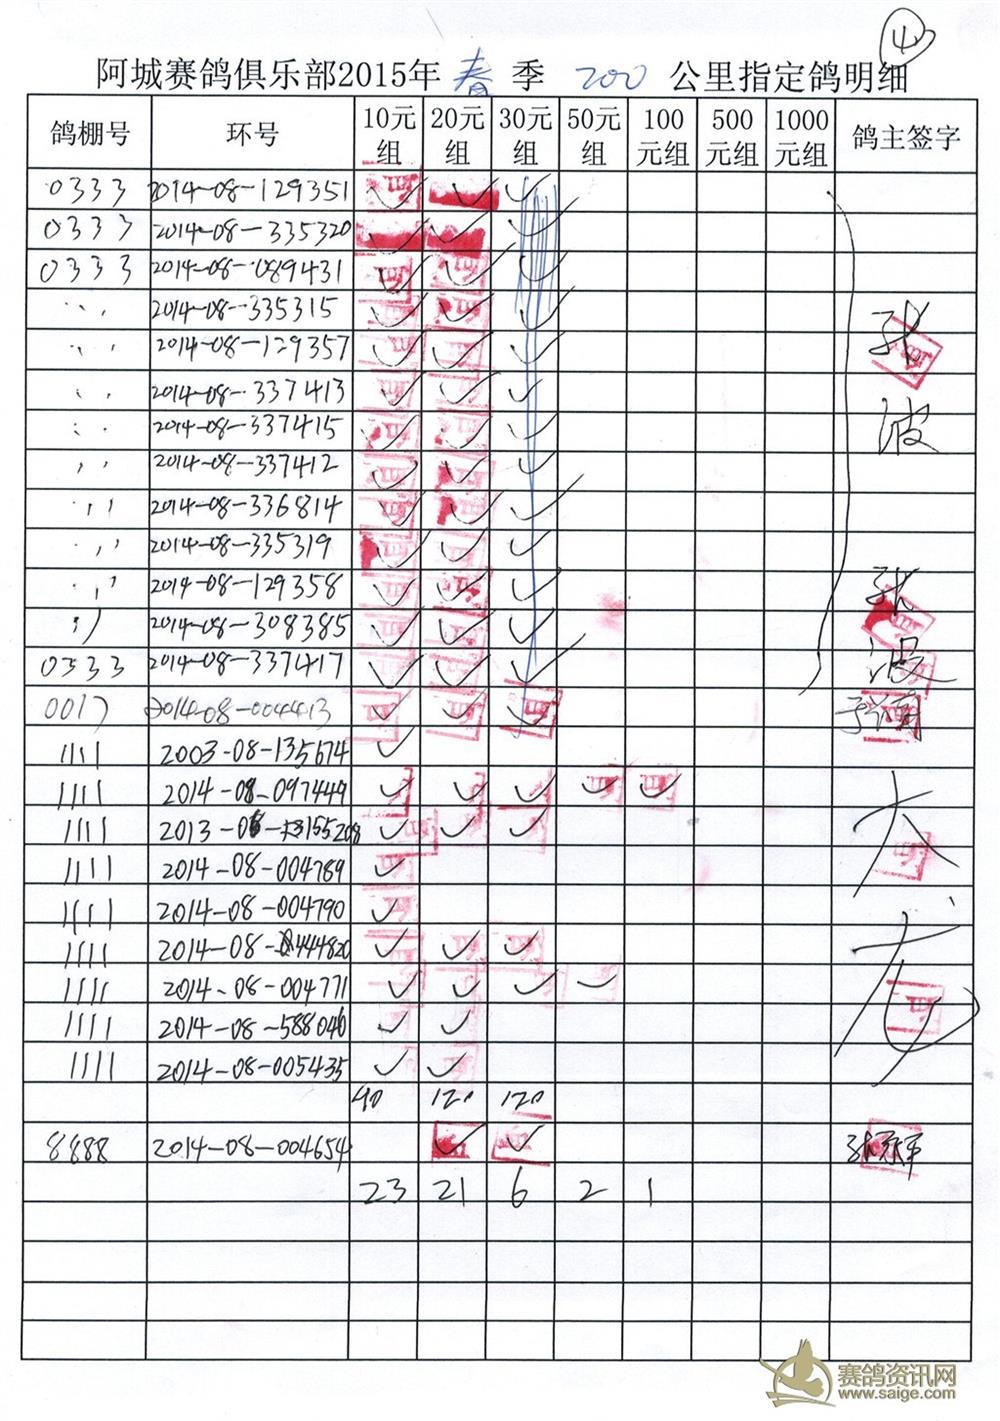 4
阿城赛鸽俱乐部2015年 春 季 200 公里指定鸽明细
鸽棚号 环号 10元组 20元组 30元组 50元组 100元组 500元组 1000元组 鸽主签字
0333 2014-08-129351 ✓ ✓ ✓
0333 2014-08-335320 ✓ ✓ ✓
0333 2014-08-089431 ✓ ✓ ✓
〃 2014-08-335315 ✓ ✓ ✓ 张
〃 2014-08-129357 ✓ ✓ ✓
〃 2014-08-337413 ✓ ✓ ✓
〃 2014-08-337415 ✓ ✓ ✓ 波
〃 2014-08-337412 ✓ ✓ ✓
〃 2014-08-336814 ✓ ✓ ✓
〃 2014-08-335319 ✓ ✓ ✓
〃 2014-08-129358 ✓ ✓ ✓ 张
〃 2014-08-308385 ✓ ✓ ✓
0333 2014-08-337417 ✓ ✓ ✓ 波
0017 2014-08-004413 ✓ ✓ ✓
1111 2003-08-135674 ✓
1111 2014-08-097449 ✓ ✓ ✓ ✓ ✓ 大
1111 ✓ ✓ ✓
1111 2014-08-004789 ✓
1111 2014-08-004790 ✓
1111 2014-08-444820 ✓ ✓ ✓
1111 2014-08-004771 ✓ ✓ ✓ ✓
1111 2014-08-588046 ✓ ✓
1111 2014-08-005435 ✓ ✓
90 120 120
8888 2014-08-004654 ✓ ✓
23 21 6 2 1
赛鸽资讯网
www.saige.com